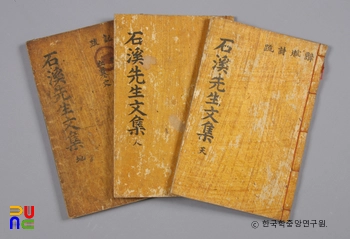 石溪先生文集
石溪先生文集 人
石溪先生文集 天
ⓒ 한국학중앙연구원